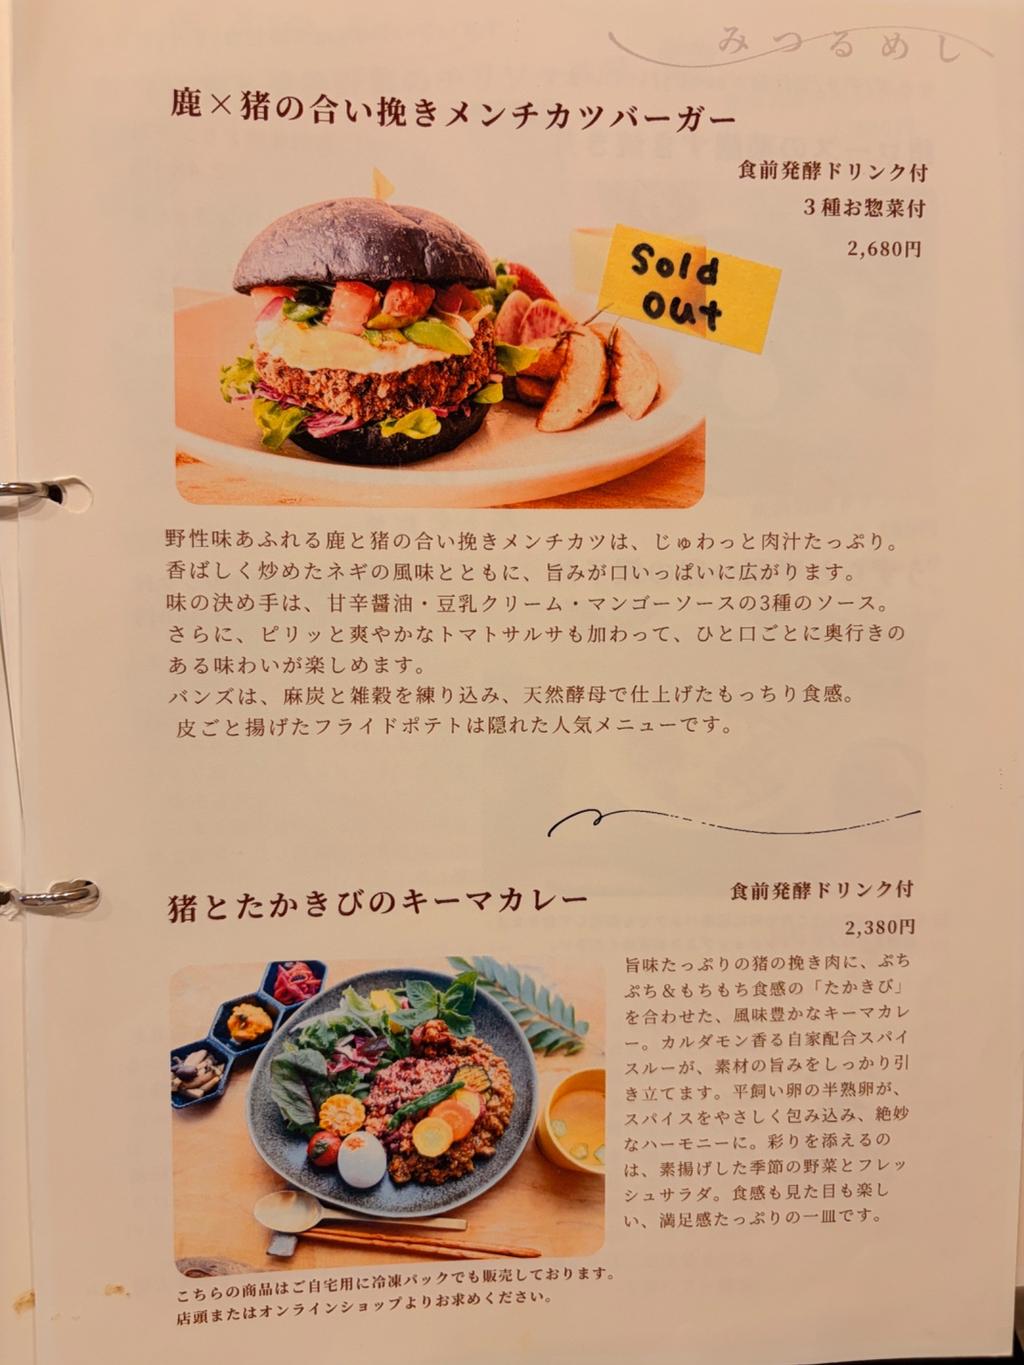 みつるめし
鹿×猪の合い挽きメンチカツバーガー
食前発酵ドリンク付
3種お惣菜付
2,680円
Sold
Out
野性味あふれる鹿と猪の合い挽きメンチカツは、じゅわっと肉汁たっぷり。
香ばしく炒めたネギの風味とともに、旨みが口いっぱいに広がります。
味の決め手は、甘辛醤油・豆乳クリーム・マンゴーソースの3種のソース。
さらに、ピリッと爽やかなトマトサルサも加わって、ひと口ごとに奥行きの
ある味わいが楽しめます。
バンズは、麻炭と雑穀を練り込み、天然酵母で仕上げたもっちり食感。
皮ごと揚げたフライドポテトは隠れた人気メニューです。
猪とたかきびのキーマカレー
食前発酵ドリンク付
2,380円
旨味たっぷりの猪の挽き肉に、ぷち
ぷち＆もちもち食感の「たかきび」
を合わせた、風味豊かなキーマカレ
ー。カルダモン香る自家配合スパイ
スルーが、素材の旨みをしっかり引
き立てます。平飼い卵の半熟卵が、
スパイスをやさしく包み込み、絶妙
なハーモニーに。彩りを添えるの
は、素揚げした季節の野菜とフレッ
シュサラダ。食感も見た目も楽し
い、満足感たっぷりの一皿です。
こちらの商品はご自宅用に冷凍パックでも販売しております。
店頭またはオンラインショップよりお求めください。